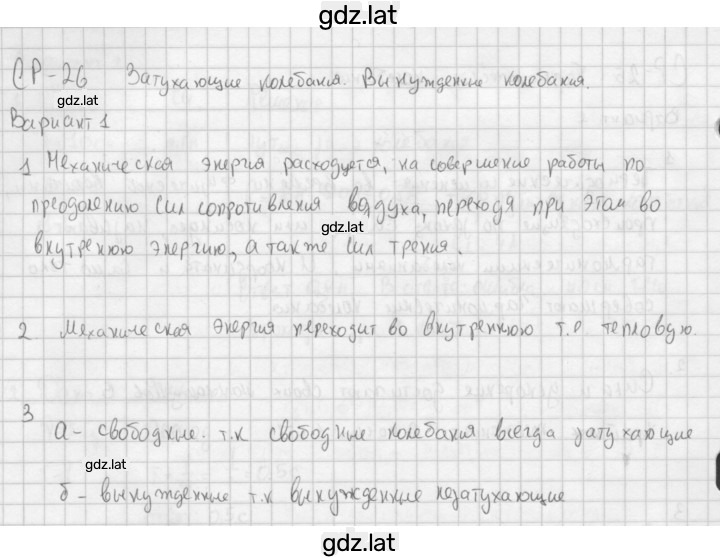 gdz.lat
СР-26 Затухающие колебания. Вынужденные колебания.
gdz.lat
Вариант 1
1 Механическая энергия расходуется, на совершение работы по
преодолению сил сопротивления воздуха, переходя при этом во
gdz.lat
внутреннюю энергию, а также сил трения.
2 Механическая энергия переходит во внутреннюю т.е тепловую.
3
а - свободные. т.к свободные колебания всегда затухающие
gdz.lat
б - вынужденные т.к вынужденные незатухающие
gdz.lat